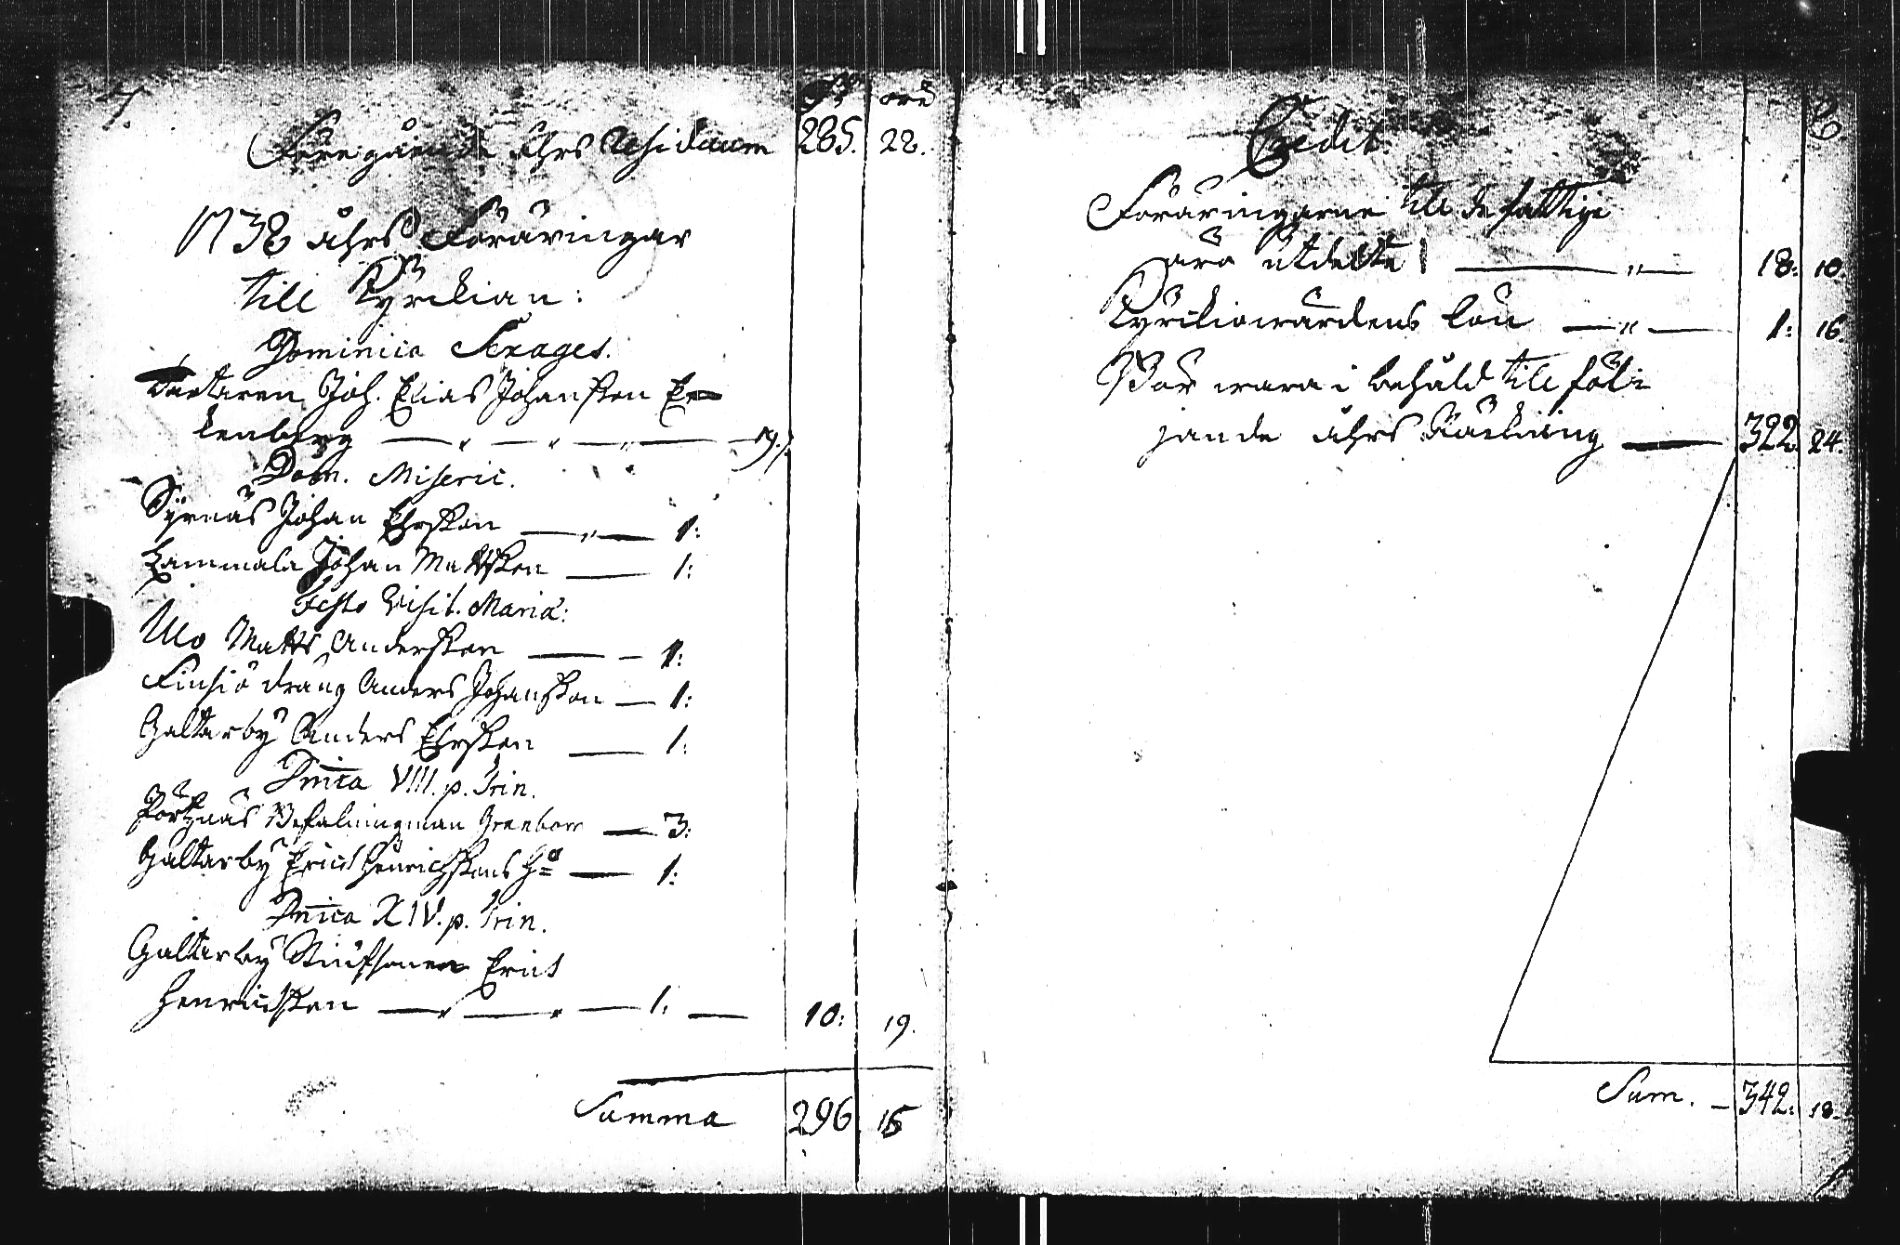 7.
öre
Föregående åhrs Residuum 285. 22.
1738 åhrs Föräringar
till Kyrckian:
Dominica Sexages.
Joh. Elias Johansson Ek-
kenberg — " — " — " — 19.
Dom. Miseric.
Syrnäs Johan Ehrsson — " — 1:
Lammala Johan Mattsson — 1:
Festo Visit. Mariæ:
Mo Matts Andersson — — 1:
Finsiö dräng Anders Johansson — 1:
Galtarby Anders Ehrsson — 1:
Dnica VIII. p. Trin.
Pörtnäs Befalningsman Grenborr — 3:
Galtarby Erich Henrichssons — 1:
Dnica XIV. p. Trin.
Galtarby Stiufsonen Erich
Henrichsson — " — " — 1: — 10: 19.
Summa 296 15
8
Credit.
Föräringarne till de fattige
äro utdelte — " — 18: 10.
Kyrckiowärdens lön — " — 1: 16.
Bör wara i behåld till föli-
jande åhrs Räckning — 322. 24.
Sum. — 342: 18.